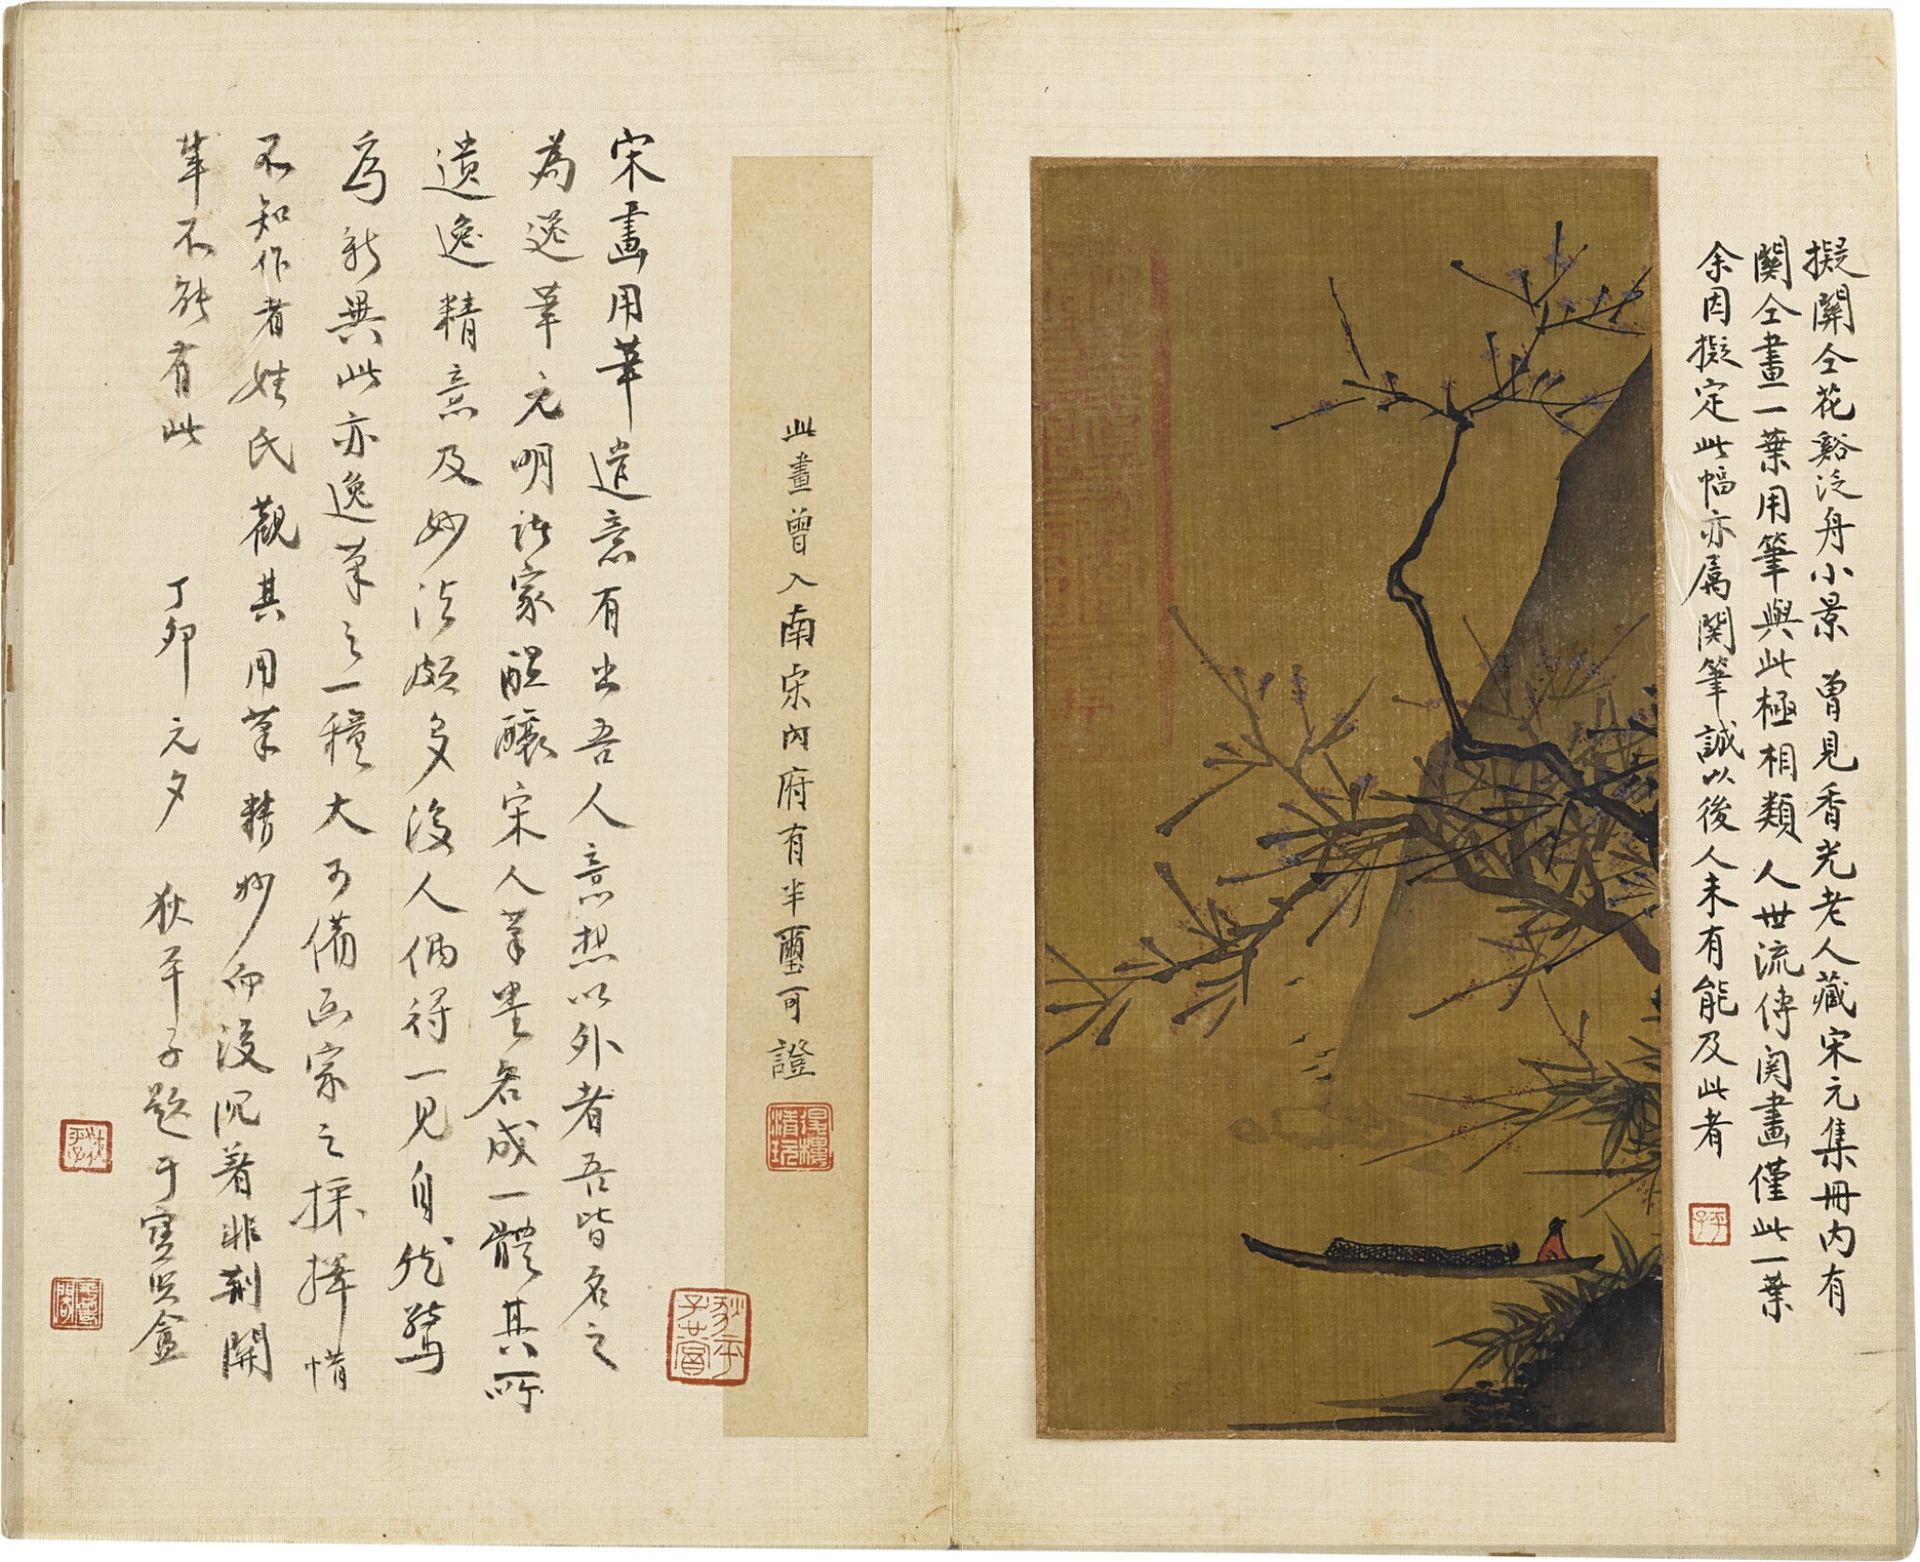 擬關仝花谿泛舟小景 曾見香光老人藏宋元集冊內有
關仝畫一葉用筆與此極相類人世流傳関畫僅此一葉
余因擬定此幅亦属関筆誠以後人未有能及此者
平子
此畫曾入南宋內府有半璽可證
宋畫用筆造意有出吾人意想以外者吾皆名之
為逸筆元明諸家醖釀宋人筆墨各成一體其所
遺逸精意及妙法頗多後人偶得一見自然驚
為新異此亦逸筆之一種大可備画家之採擇惜
不知作者姓氏觀其用筆精妙而沒沉著非荆関
筆不能有此 丁卯元夕 狄平子題于寶賢盦
狄平
子嘗